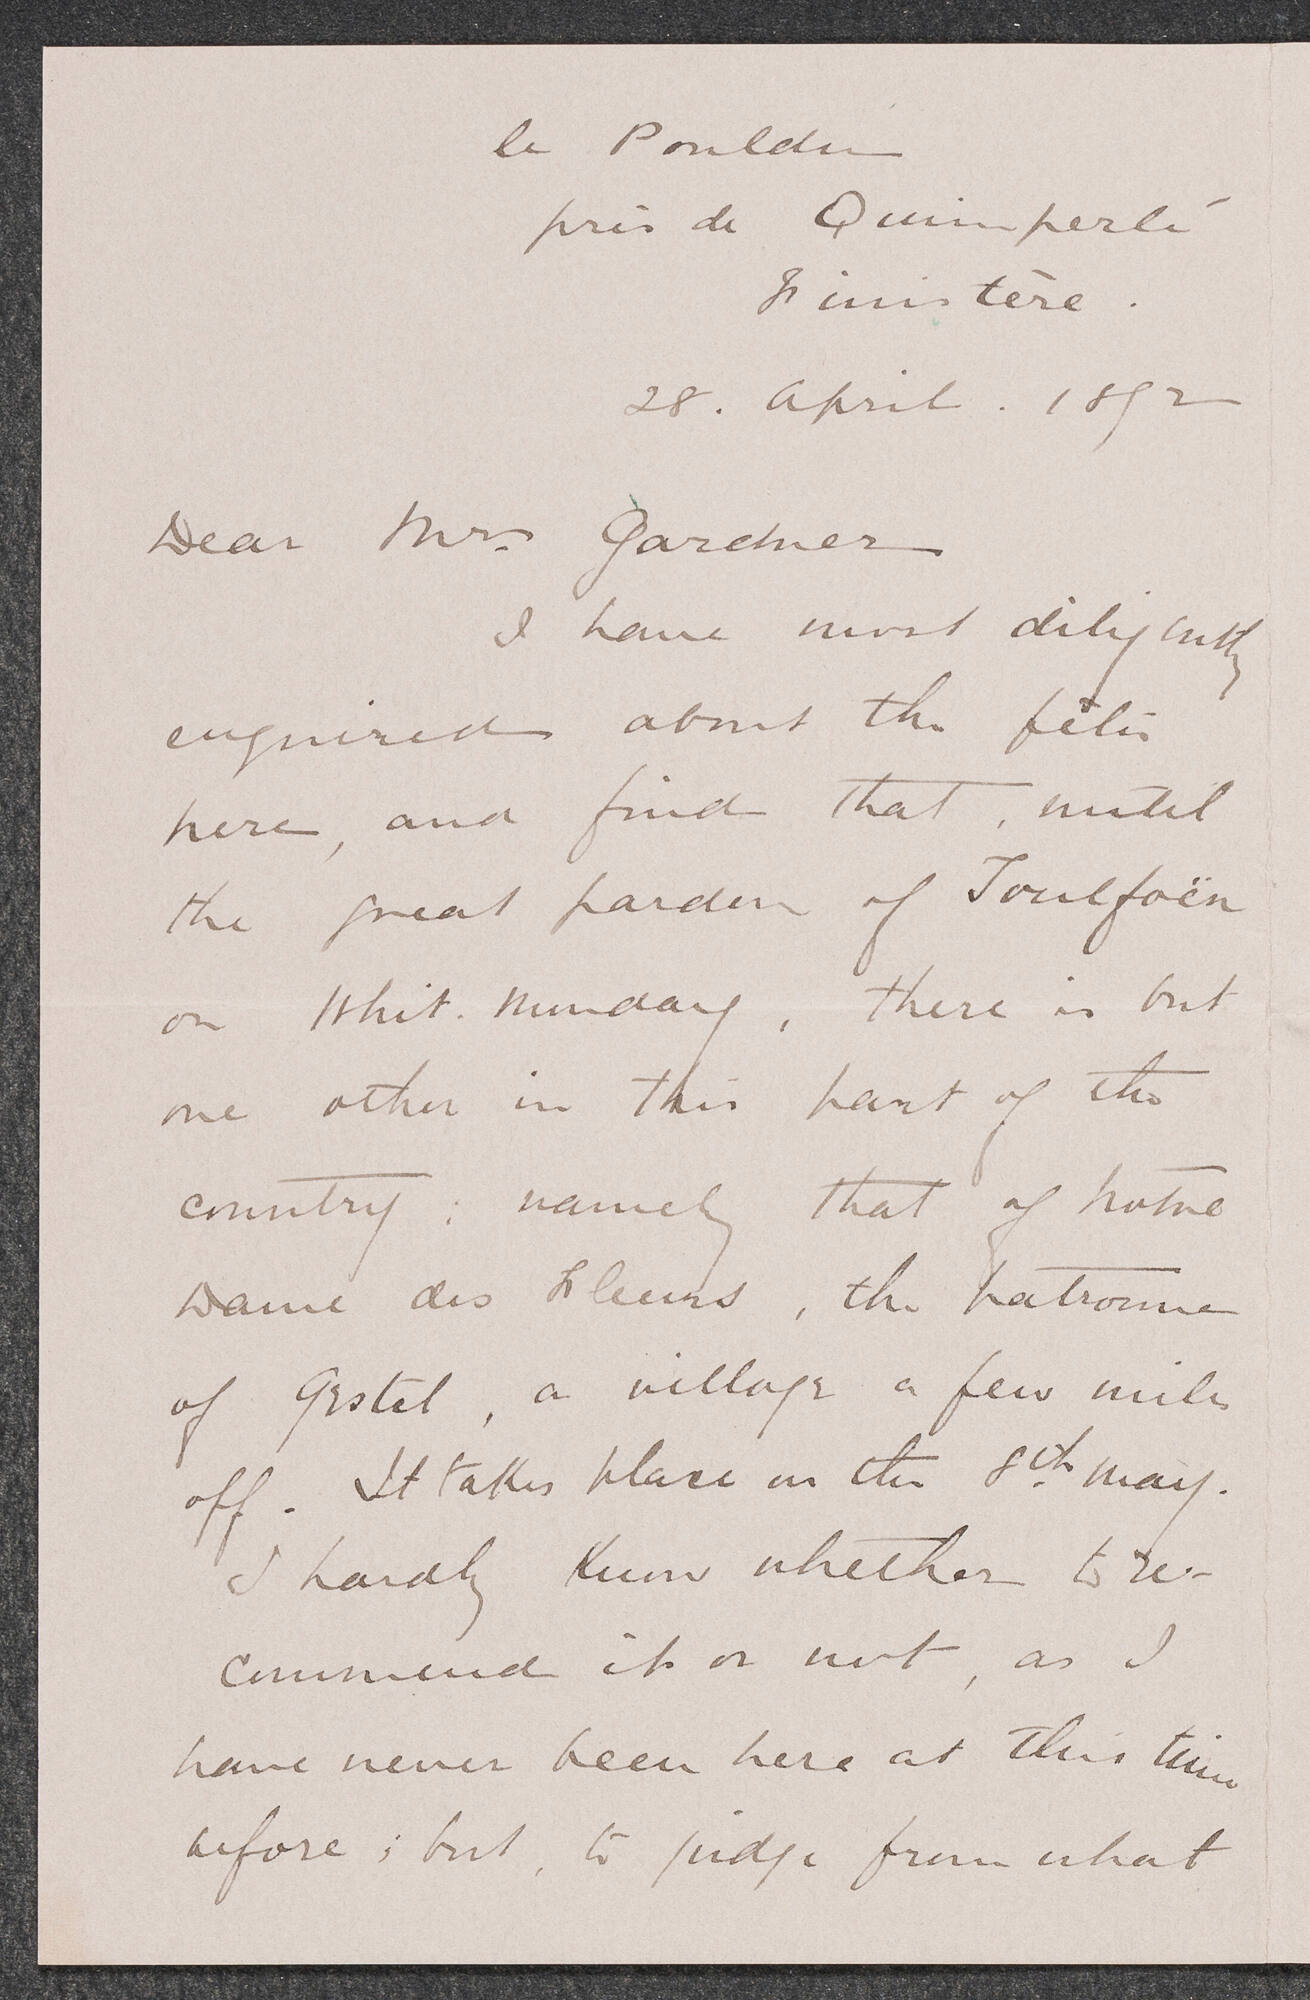 le Pouldu
près de Quimperlé
Finistère.
28. April. 1892
Dear Mrs. Gardner
I have most diligently
enquired about the fêtes
here, and find that, until
the great pardon of Toulfoën
on Whit. Monday, there is but
one other in this part of the
country; namely that of Notre
Dame des Fleurs, the patronne
of Gestel, a village a few miles
off. It takes place on the 8th. May.
I hardly know whether to re-
commend it or not, as I
have never been here at this time
before; but, to judge from what